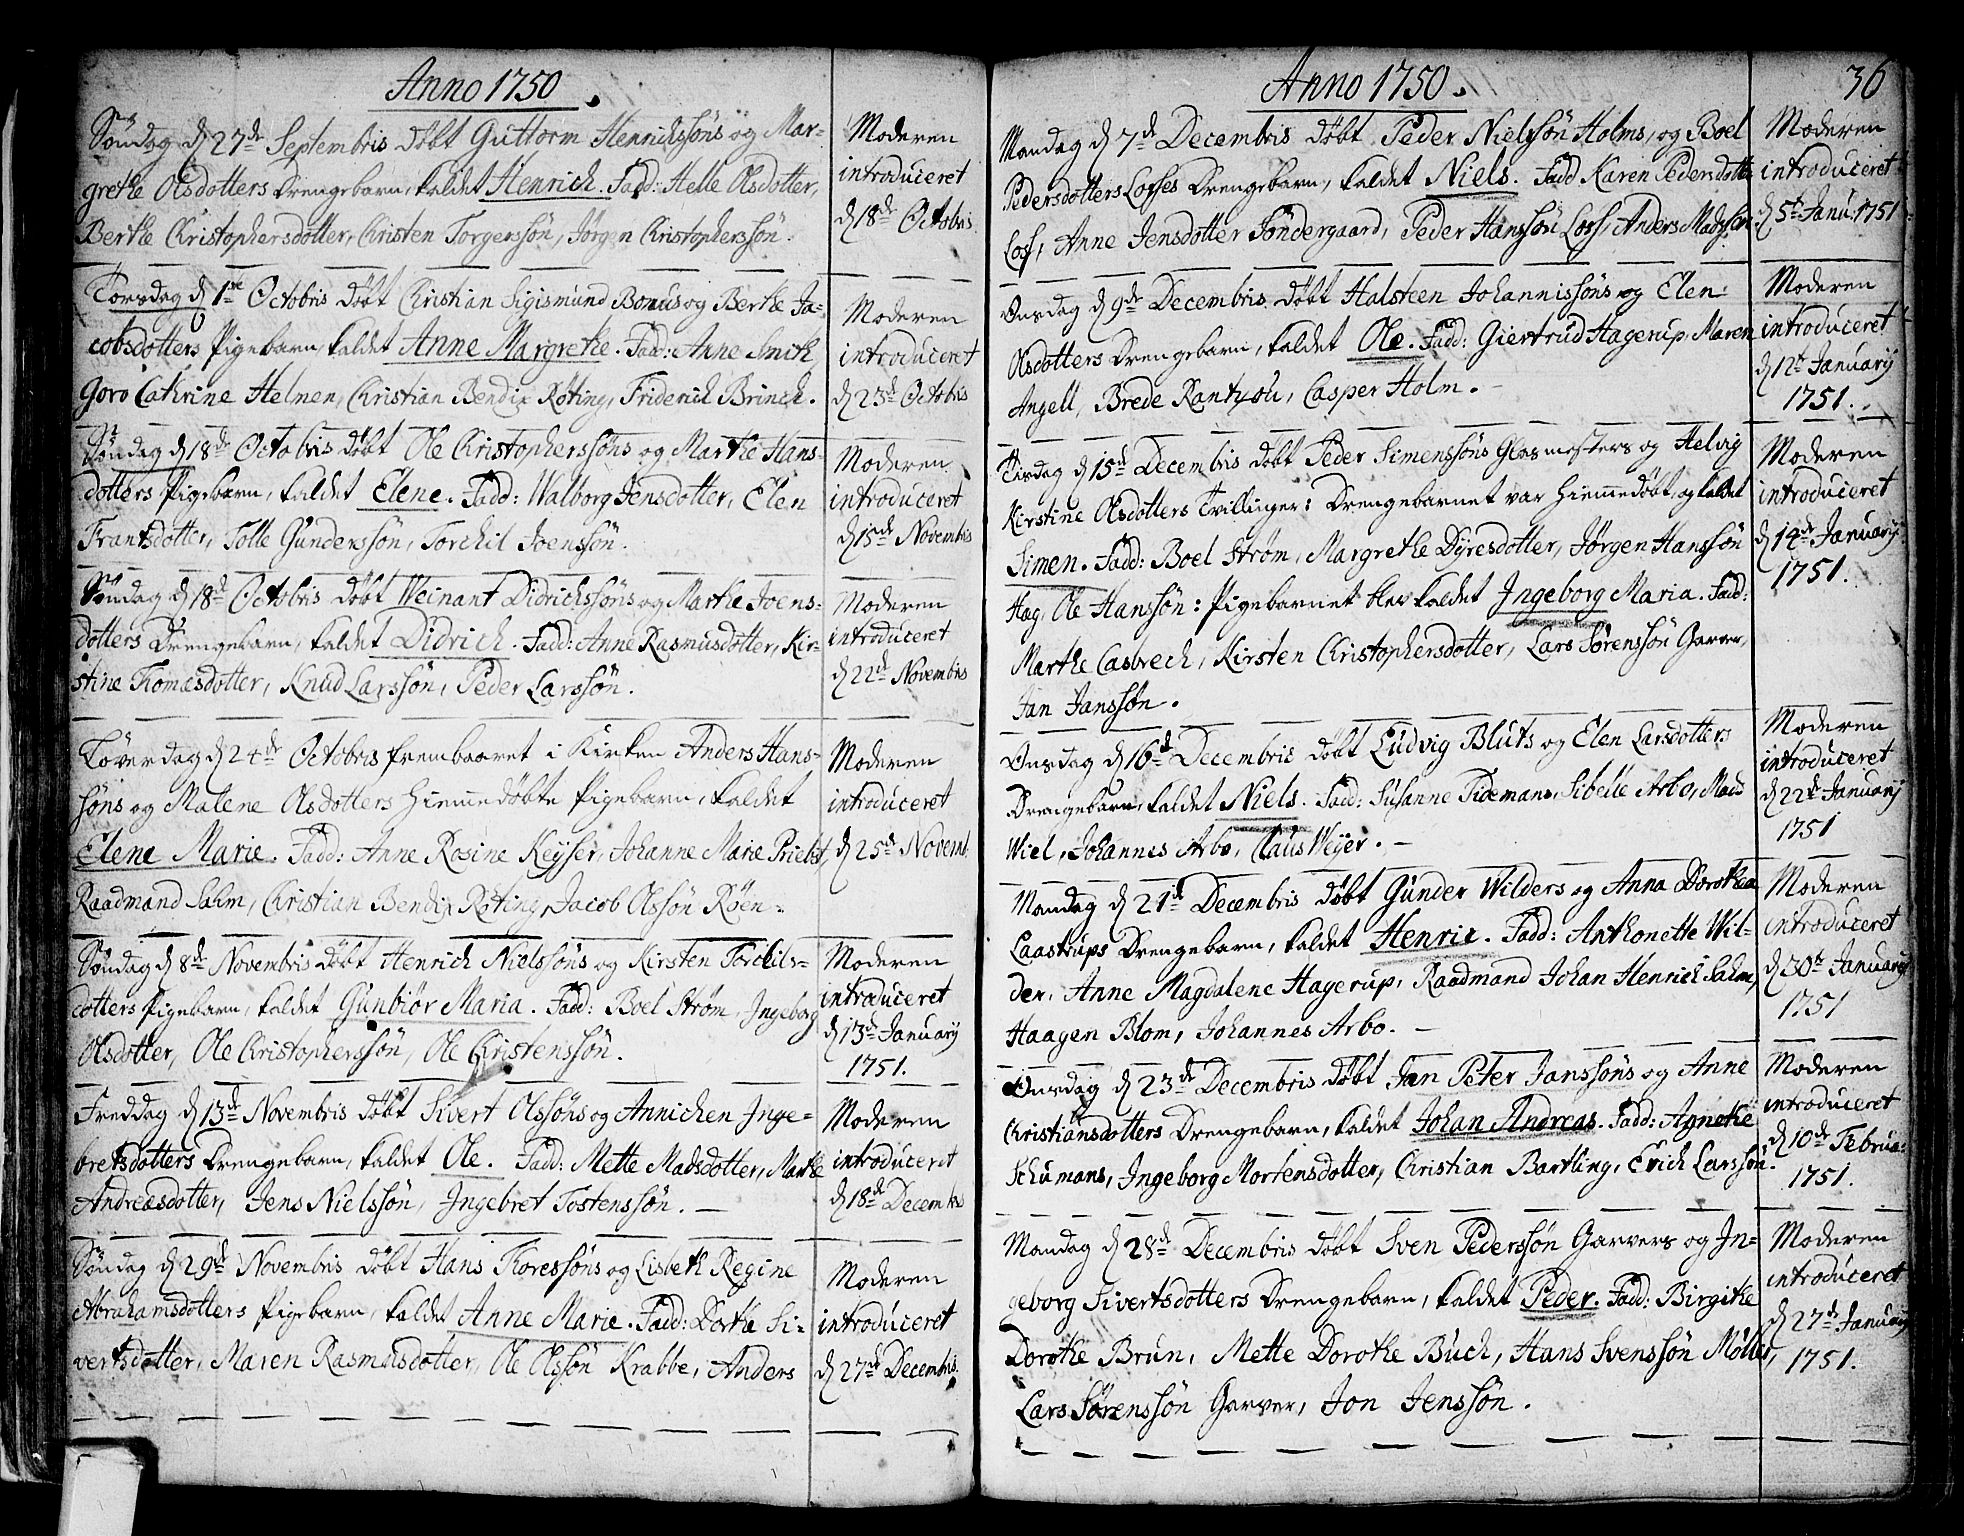 Anno 1750.
Søndag d 27de Septembris døbt Guttorm Henrichsøns og Mar-
grethe Olsdotters Drengebarn, kaldet Henrich. Fadd: Helle Olsdotter,
Berthe Christophersdotter, Christen Torgerssøn, Jørgen Christopherssøn.
Moderen
introduceret
d 18de Octobris
Torsdag d 1ste Octobris døbt Christian Sigismund Bonus og Berthe Ja-
cobsdotters Pigebarn, kaldet Anne Margrethe. Fad: Anne Smith,
Goro Cathrine Helmen, Christian Bendix Røting, Friderich Brinch.
Moderen
introduceret
d 23de Octobris
Søndag d 18de Octobris døbt Ole Christopherssøns og Marthe Hans-
dotters Pigebarn, kaldet Elene. Fadd: Walborg Jensdotter, Elen
Frantsdotter, Tolle Gunderssøn, Torchil Joenssøn.
Moderen
introduceret
d 15de Novembris
Søndag d 18de Octobris døbt Weinant Didrichssøns og Marthe Joens-
dotters Drengebarn, kaldet Didrich. Fadd: Anne Rasmusdotter, Kir-
stine Thomæsdotter, Knud Larssøn, Peder Larssøn.
Moderen
introduceret
d 22de Novembris
Løverdag d 24de Octobris frembaaret i Kirken Anders Hans-
søns og Malene Olsdotters hiemmedøbte Pigebarn, kaldet
Elene Marie. Fadd: Anne Rosine Keyser, Johanne Marie Priebst,
Raadmand Sahm, Christian Bendix Røting, Jacob Olssøn Røen.
Moderen
introduceret
d 25de Novemb.
Søndag d 8de Novembris døbt Henrich Nielssøns og Kirsten Torchils-
dotters Pigebarn, kaldet Gunbiør Maria. Fadd: Boel Strøm, Ingeborg
Olsdotter, Ole Christopherssøn, Ole Christenssøn.
Moderen
introduceret
d 13de January
1751.
Freddag d 13de Novembris døbt Sivert Olssøns og Annichen Inge-
bretsdotters Drengebarn, kaldet Ole. Fadd: Mette Madsdotter, Marthe
Andreæsdotter, Jens Nielssøn, Ingebret Tostenssøn.
Moderen
introduceret
d 18de Decembris
Søndag d 29de Novembris døbt Hans Thoressøns og Lisbeth Regine
Abrahamsdotters Pigebarn, kaldet Anne Marie. Fadd: Dorthe Si-
vertsdotter, Maren Rasmusdotter, Ole Olssøn Krabbe, Anders
Moderen
introduceret
d 27de Decembris.
Anno 1750.
36
Mandag d 7de Decembris døbt Peder Nielssøn Holms, og Boel
Pedersdotters Losses Drengebarn, kaldet Niels. Fadd Karen Pedersdotter
Loss, Anne Jensdotter Søndergaard, Peder Hanssøn Loss, Anders Madssøn.
Moderen
introduceret
d 5te Janu. 1751
Onsdag d 9de Decembris døbt Halsteen Johannissøns og Elen
Olsdotters Drengebarn, kaldet Ole. Fadd: Giertrud Hagerup, Maren
Angell, Brede Rantzou, Casper Holm.
Moderen
introduceret
d 12te January
1751.
Tirsdag d 15de Decembris døbt Peder Simenssøns Glasmesters og Helvig
Kirstine Olsdotters Tvillinger: Drengebarnet var hiemmedøbt, og kaldet
Simen. Fadd: Boel Strøm, Margrethe Dyresdotter, Jørgen Hanssøn
Hag, Ole Hanssøn: Pigebarnet blev kaldet Ingeborg Maria. Fadd:
Marthe Casbrech, Kirsten Christophersdotter, Lars Sørenssøn Garver,
Jan Janssøn.
Moderen
introduceret
d 14de January
1751.
Onsdag d 16de Decembris døbt Ludvig Bluts og Elen Larsdotters
Drengebarn, kaldet Niels. Fadd: Susanne Tidemans, Sibelle Arbo, Mads
Wiel, Johannes Arbo, Claus Weyer.
Moderen
introduceret
d 22de January
1751
Mandag d 21de Decembris døbt Gunder Wilders og Anna Dorothea
Laastrups Drengebarn, kaldet Henric. Fadd: Anthonette Wil-
der, Anne Magdalene Hagerup, Raadmand Johan Henrich Sahm,
Haagen Blom, Johannes Arbo.
Moderen
introduceret
d 30te January
1751
Onsdag d 23de Decembris døbt Jan Peter Janssøns og Anne
Christiansdotters Drengebarn, kaldet Johan Andreas. Fadd: Agnethe
Schumans, Ingeborg Mortensdotter, Christian Bartling, Erich Larssøn.
Moderen
introduceret
d 10de Februa:
1751.
Mandag d 28de Decembris døbt Sven Pederssøn Garvers og In-
geborg Sivertsdotters Drengebarn, kaldet Peder. Fadd: Birgithe
Dorothe Brun, Mette Dorothe Buch, Hans Svenssøn Møller,
Lars Sørenssøn Garver, Jon Jenssøn.
Moderen
introduceret
d 27de January
1751.